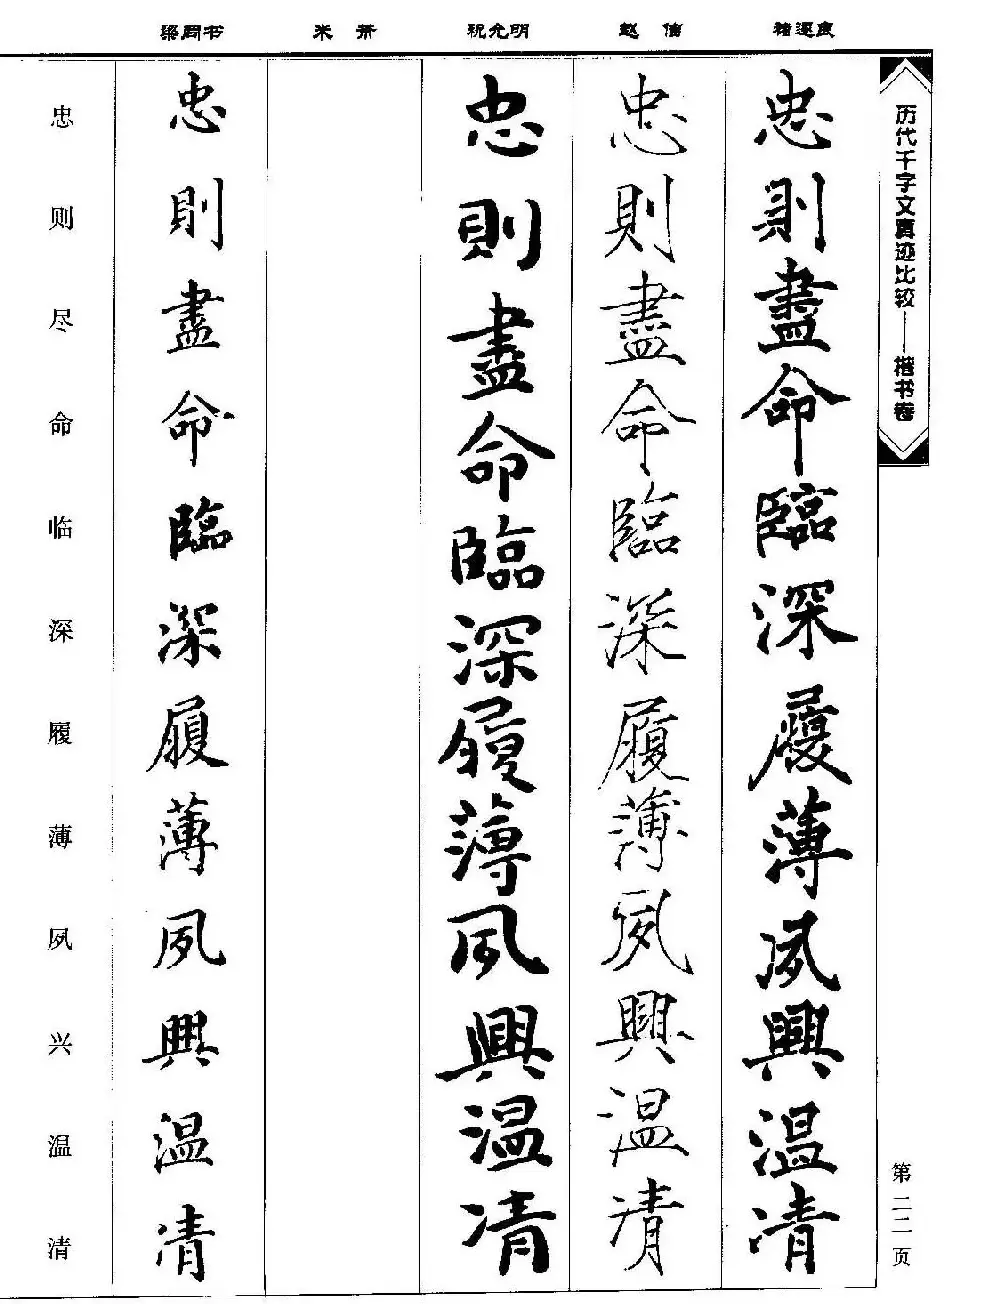 历代千字文真迹比较——楷书卷
第二二页
褚遂良
忠則盡命臨深履薄夙興温凊
赵佶
忠則盡命臨深履薄夙興温凊
祝允明
忠則盡命臨深履薄夙興温凊
米芾
梁同书
忠則盡命臨深履薄夙興温凊
忠则尽命临深履薄夙兴温清